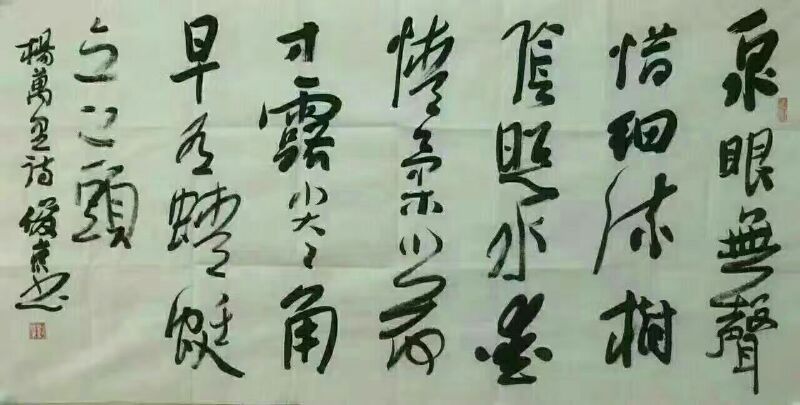 泉眼無聲
惜细流樹
陰照水愛
晴柔小荷
才露尖々角
早有蜻蜓
立上頭
楊萬里詩 俊